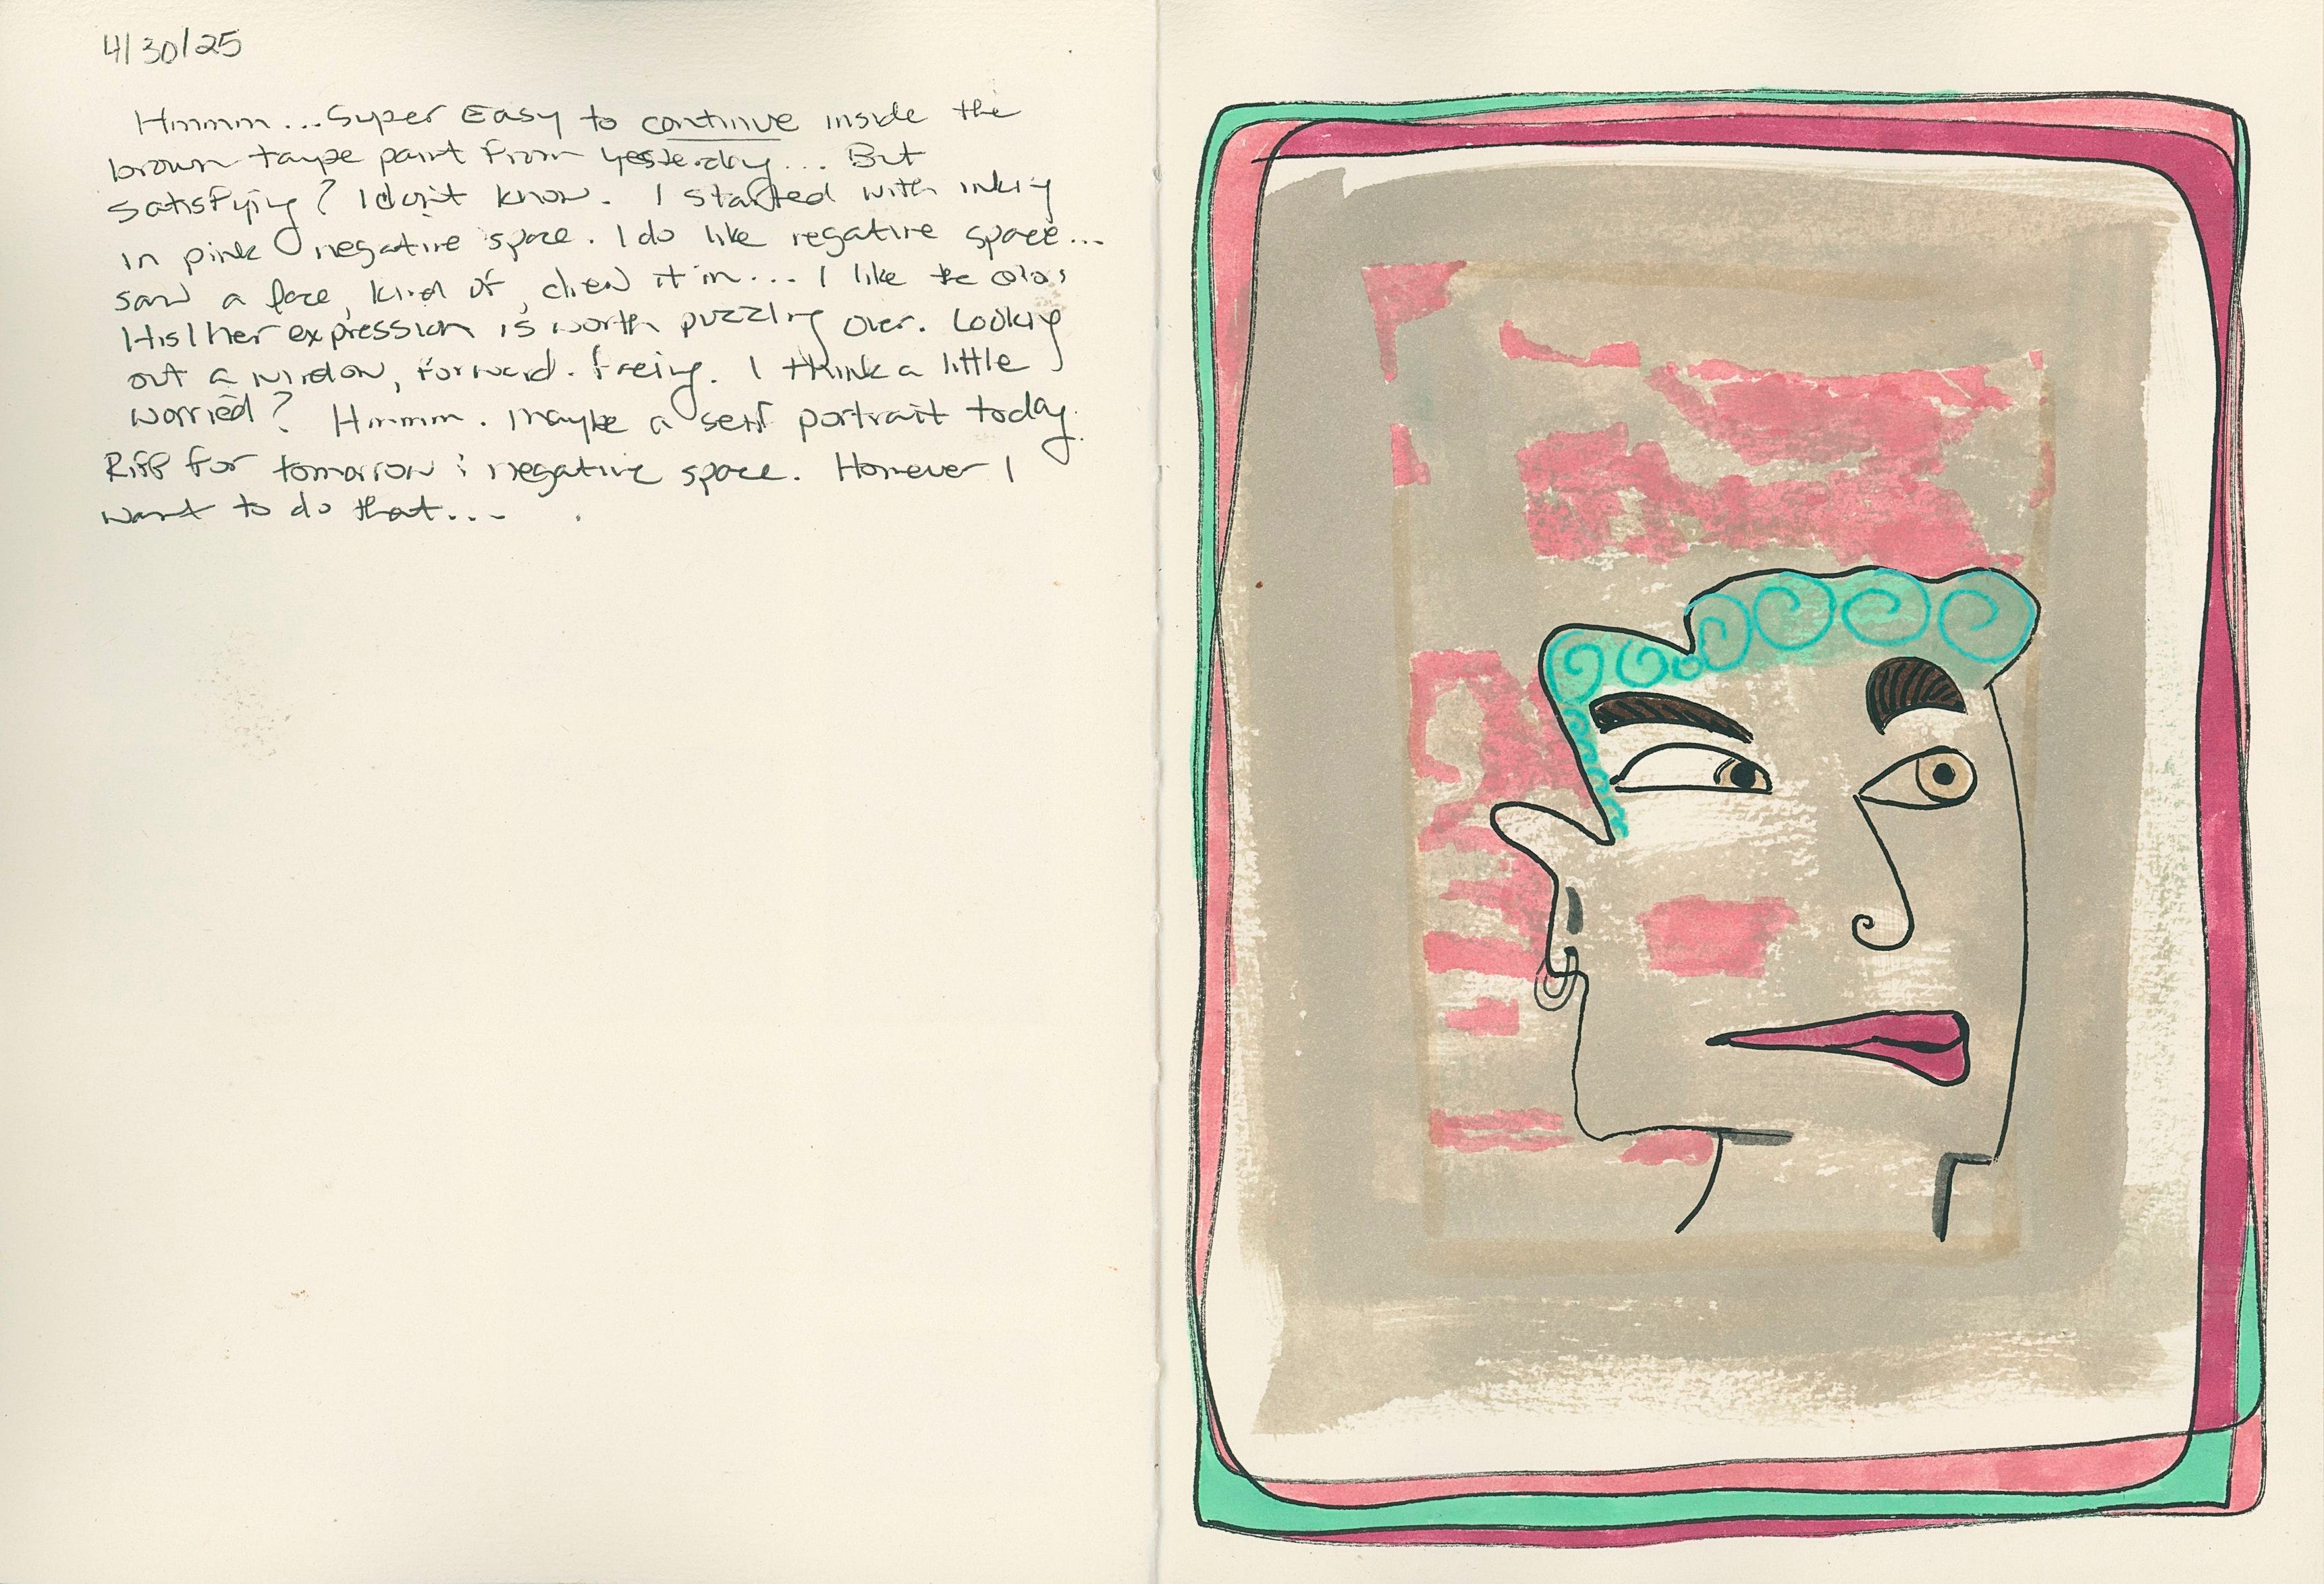 4/30/25
Hmmm... Super Easy to continue inside the
brown taupe paint from yesterday... But
satisfying? I don't know. I started with inking
in pink negative space. I do like negative space...
saw a face, kind of, drew it in... I like the color
His/her expression is worth puzzling over. Looking
out a window, forward. facing. I think a little
worried? Hmmm. Maybe a self portrait today.
Riff for tomorrow: negative space. However I
want to do that...